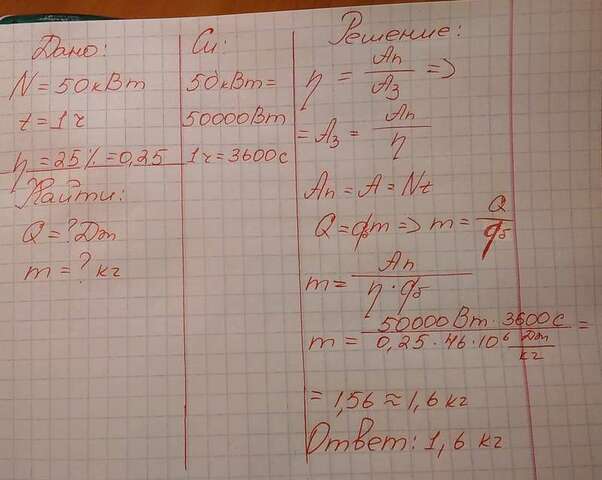 Дано:
N = 50 кВт
t = 1 ч
η = 25% = 0,25
Найти:
Q = ? Дж
m = ? кг
Си:
50 кВт =
50000 Вт
1 ч = 3600 с
Решение:
η = Aп/Aз =>
= Aз = Aп/η
Aп = A = Nt
Q = qбm => m = Q/qб
m = Aп/(η · qб)
m = (50000 Вт · 3600 с)/(0,25 · 46 · 10⁶ Дж/кг) =
= 1,56 ≈ 1,6 кг
Ответ: 1,6 кг